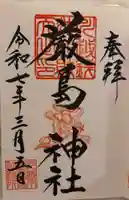 奉拝
厳島神社
令和七年三月五日